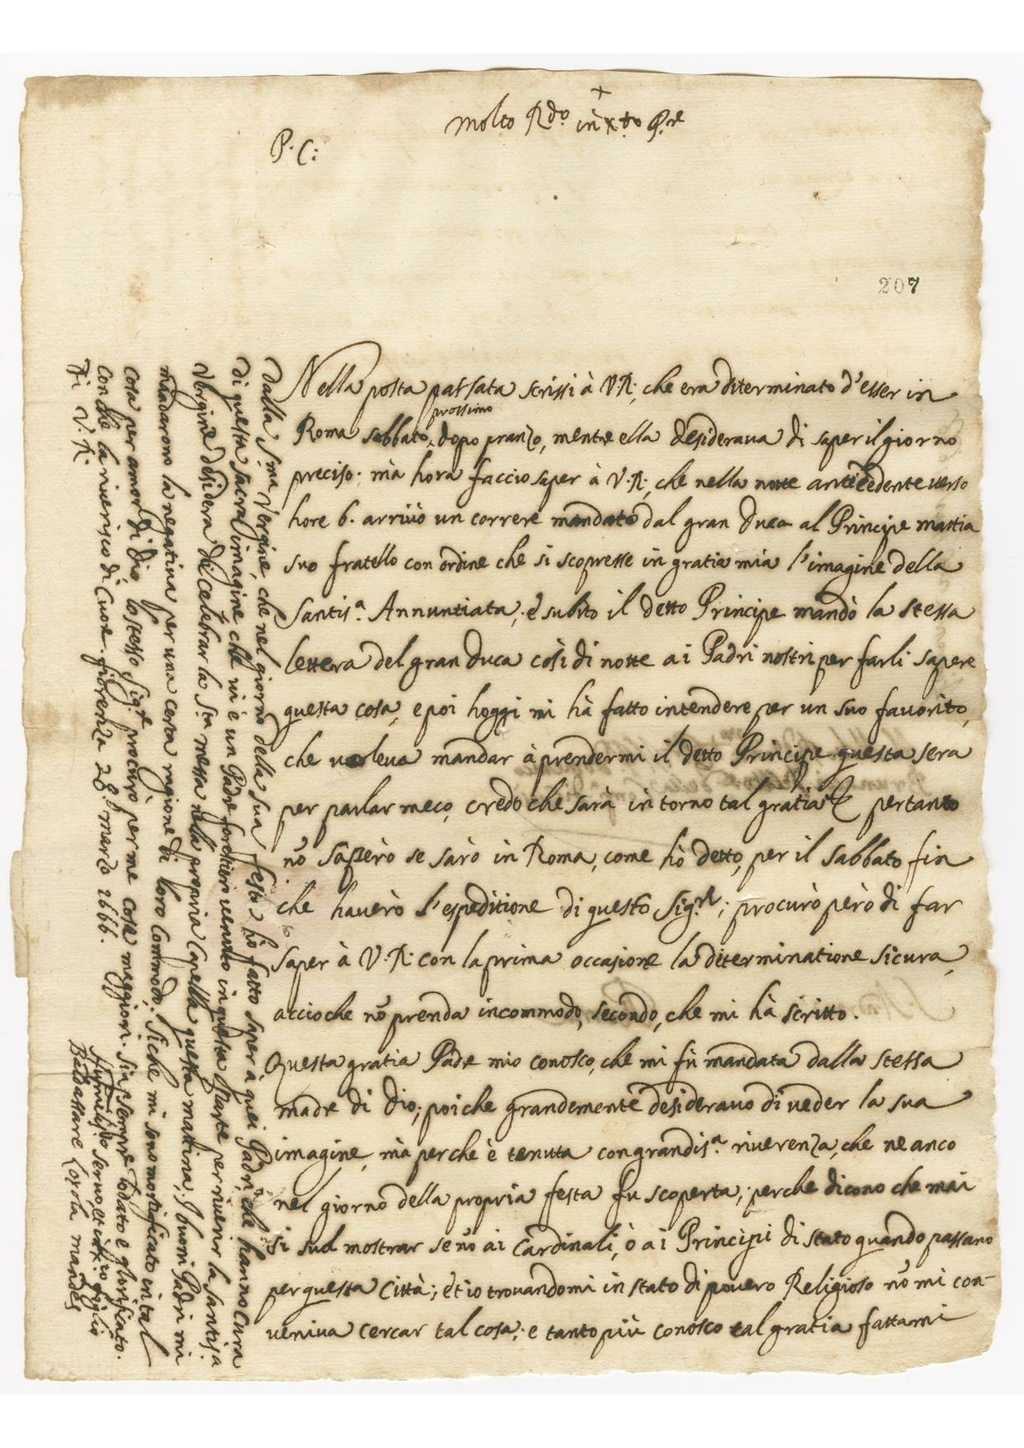 +
Molto R.do in X.to P.re
P. C:
207
Nella posta passata scrissi à V.R; che era diterminato d'esser in
prossimo
Roma sabbato, dopo pranzo, mentre ella desiderava di saper il giorno
preciso; mà hora faccio saper à V.R; che nella notte antecedente verso
hore 6. arrivò un correre mandato dal gran Duca al Principe mattia
suo fratello con ordine che si scopresse in gratia mia l'imagine della
Santis.a Annuntiata; è subito il detto Principe mandò la stessa
lettera del gran Duca così di notte a i Padri nostri per farli sapere
questa cosa, e poi hoggi mi hà fatto intendere per un suo favorito,
che voleva mandar à prendermi il detto Principe questa sera
per parlar meco, credo che sarà intorno tal gratia pertanto
nõ saperò se sarò in Roma, come hò detto, per il sabbato fin
che haverò l'espeditione di questo Sig.re; procurò però di far
saper à V.R: con la prima occasione la diterminatione sicura,
accioche nõ prenda incommodo, secondo, che mi hà scritto.
Questa gratia Padre mio conosco, che mi fù mandata dalla stessa
madre di Dio; poiche grandemente desideravo di veder la sua
imagine, mà perche è tenuta con grandis.a riverenza, che ne anco
nel giorno della propria festa fu scoperta; perche dicono che mai
si suol mostrar se nõ ai Cardinali, ò a i Principi di stato quando passano
per questa Città; et io trovandomi in stato di povero Religioso nõ mi con-
veniva cercar tal cosa; e tanto più conosco tal gratia fattami
dalla S.ma Vergine, che nel giorno della sua festa hò fatto saper à quei Padri, che hanno cura
di questa sacra imagine che vi è un Padre forestiero venuto in questa parte per riverir la Santis.a
Vergine desidera di Celebrar la S.ta messa nella propria Capella questa mattina; I buoni Padri mi
mandarono la negativa per una certa ragione di loro Commodo; Siche mi sono mortificato in tal
cosa per amor di Dio, lo stesso Sig.re procurò per me cose maggiori. Sia sempre lodato e glorificato.
Con che la riverisco di Cuore. fiorenza 28 marzo 1666.
Di V.R.
Humilis.o servo et in X.o figlio
Baldassare Loyola mandes